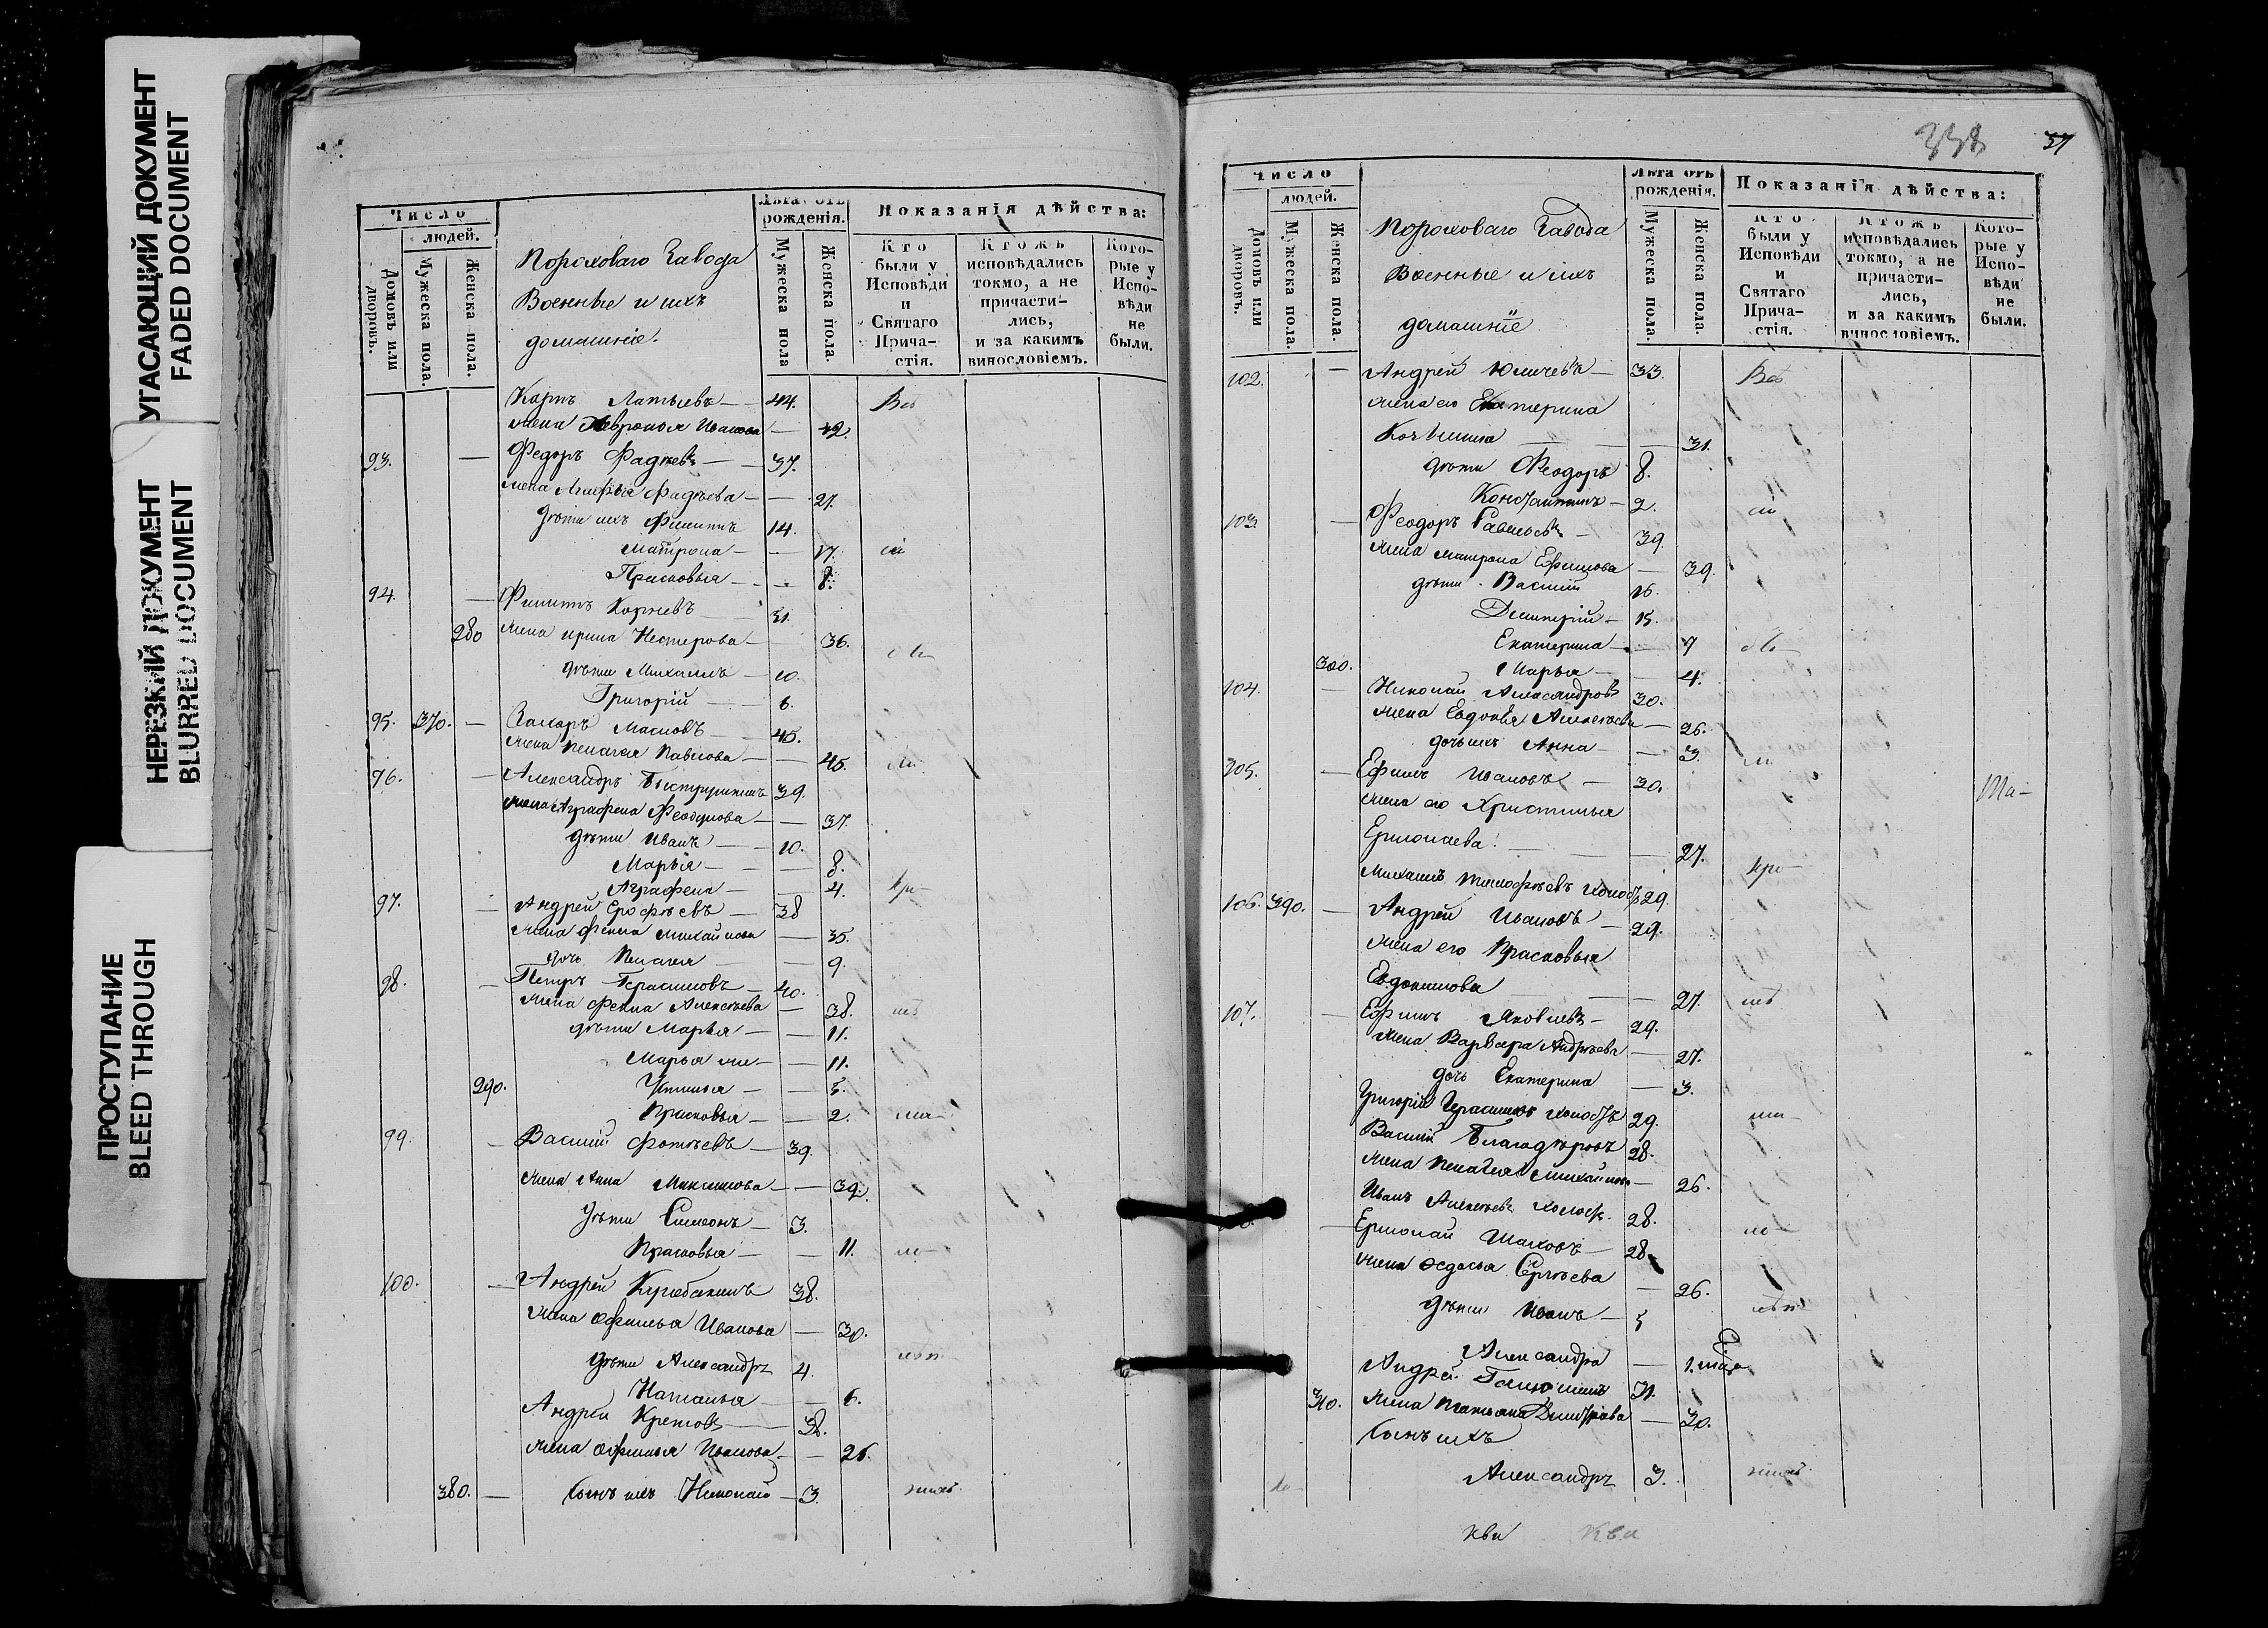 УГАСАЮЩИЙ ДОКУМЕНТ
FADED DOCUMENT
НЕРЕЗКИЙ ДОКУМЕНТ
BLURRED DOCUMENT
ПРОСТУПАНИЕ
BLEED THROUGH
Число
людей.
Домовъ или дворовъ.
Мужеска пола.
Женска пола.
Пороховаго Завода
Военные и ихъ
домашніе.
Лѣта отъ рожденія.
Мужеска пола
Женска пола.
Показанія дѣйства:
Кто были у Исповѣди и Святаго Прича-стія.
Ктожъ исповѣдались токмо, а не причасти-лись, и за какимъ винословіемъ.
Кото-рые у Испо-вѣди не были.
Карпъ — 44. Всѣ
жена Ивановa — 42.
93. — Федоръ Фадѣевъ — 37.
жена Фадѣева — 27.
дѣти ихъ Филиппъ 14.
Матрона — 17.
Прасковья — 8.
94. — Филиппъ Корневъ 31.
280 жена Ирина Нестерова — 36.
дѣти Михаилъ — 10.
Григорій — 6.
95. 370. — Захаръ Масловъ — 45.
жена Пелагея Павлова — 45.
96. — Александръ 39.
жена Аграфена — 37.
дѣти Иванъ — 10.
Марья — 8.
Аграфена — 4.
97. — Андрей Ерофѣевъ — 38
жена Фекла Михайлова — 35.
дочь Пелагея — 9.
98. — Петръ Герасимовъ — 40.
жена Фекла Алексѣева — 38.
дѣти Марья — 11.
Марья — 11.
290. Устинья — 5.
Прасковья — 2.
99. — Василій Фотѣевъ — 39.
жена Анна Максимова — 39.
дѣти Симеонъ — 3.
Прасковья — 11.
100. — Андрей 38.
жена Афимья Иванова — 30.
дѣти Александръ 4.
Наталья — 6.
Андрей Кретовъ — 38.
жена Афимья Иванова — 26.
380. — сынъ ихъ Николай — 3.
338
37
Число
людей.
Домовъ или дворовъ.
Мужеска пола.
Женска пола.
Пороховаго Завода
Военные и ихъ
домашніе
Лѣта отъ рожденія.
Мужеска пола.
Женска пола.
Показанія дѣйства:
Кто были у Исповѣди и Святаго Прича-стія.
Ктожъ исповѣдались токмо, а не причасти-лись, и за какимъ винословіемъ.
Кото-рые у Испо-вѣди не были.
102. — Андрей — 33. Всѣ
жена его Екатерина
— 31.
дѣти Феодоръ 8.
Константинъ — 2.
103. — Феодоръ Савельевъ — 39.
жена Матрона Ефимова — 39.
дѣти Василій 16.
Димитрій — 15.
Екатерина — 7
300. Марья — 4.
104. — Николай Александровъ 30.
жена Евдокья Алексѣева — 26.
дочь ихъ Анна — 3.
105. — Ефимъ Ивановъ — 30.
жена его Христинья
Ермолаева — 27.
Михаилъ 29.
106. 390. — Андрей Ивановъ — 29.
жена его Прасковья
Евдокимова — 27.
107. — Ефимъ Яковлевъ — 29.
жена Варвара Андрѣева — 27.
дочь Екатерина — 3.
Григорій Герасимовъ 29.
Василій 28.
жена Пелагея Михайлова — 26.
Иванъ Алексѣевъ 28.
Ермолай Шаховъ — 28.
жена Федосья Сергѣева — 26.
дѣти Иванъ — 5
Александра — 1.
Андрей 31.
310. жена Татьяна — 30.
сынъ ихъ
Александръ 3.